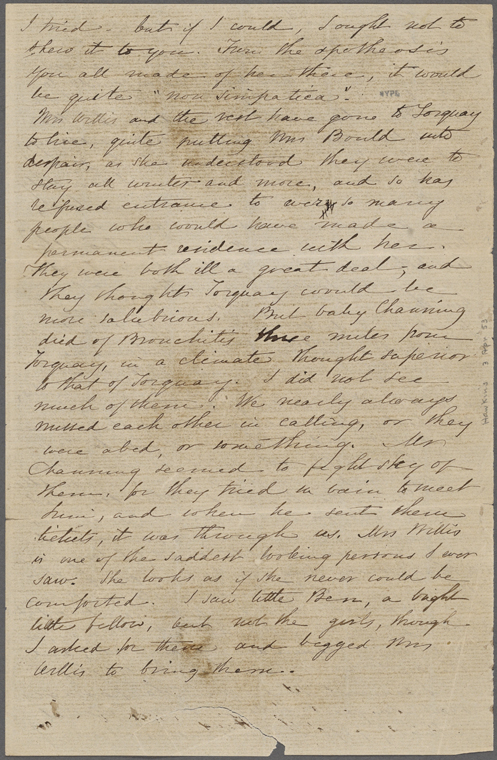 I tried - but if I could, I ought not to
shew it to you. From the apotheosis
you all made of her there, it would
be quite "non simpatica".
NYPL
Mrs Willis and the rest have gone to Torquay
to live, quite putting Mrs Bould into
despair, as she understood they were to
stay all winter and more, and so has
refused entrance to very so many
people who would have made a
permanent residence with her.
They were both ill a great deal, and
they thought Torquay would be
more salubrious. But baby Channing
died of Bronchitis three miles from
Torquay, in a climate thought superior
to that of Torquay. I did not see
much of them. We nearly always
missed each other in calling, or they
were abed, or something. Mr
Channing seemed to fight shy of
them, for they tried in vain to meet
him, and when he sent them
tickets, it was through us. Mrs Willis
is one of the saddest looking persons I ever
saw. She looks as if she never could be
comforted. I saw little Bem, a bright
little fellow, but not the girls, though
I asked for them and begged Mrs
Willis to bring them.